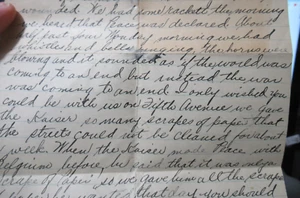 wounded. We had some racket the morning
we heard that Peace was declared. About
past four Monday morning we had
whistles and bells ringing, the horns were
blowing and it sounded as if the world was
coming to an end, but instead the war
was coming to an end. I only wished you
could be with us on Fifth Avenue, we gave
the Kaiser so many scraps of paper that
the streets could not be cleaned for about
a week. When the Kaiser made Peace with
Belgium before, he said that it was only a
scrape of paper so we gave him all the scraps
of paper he wanted that day. you should